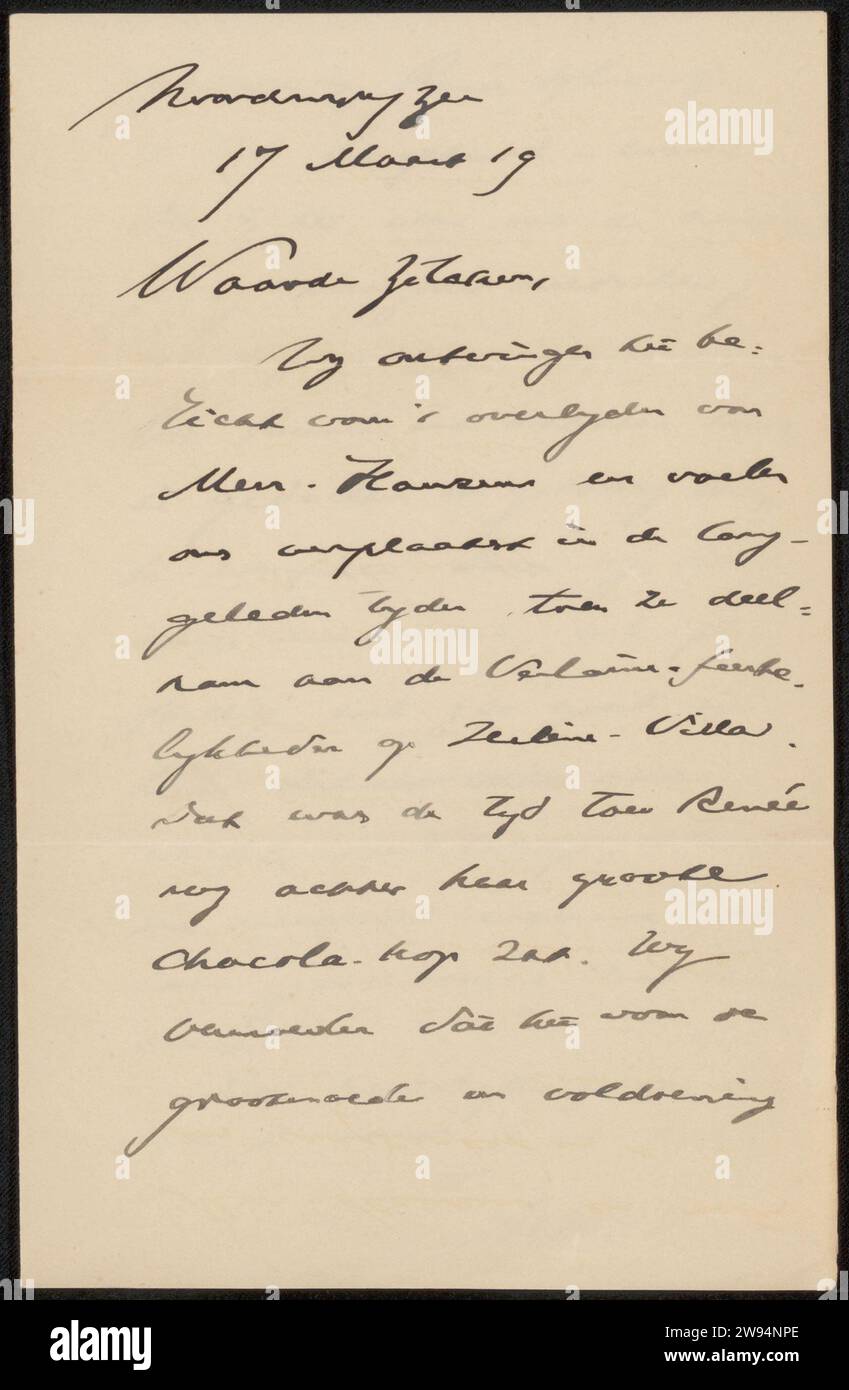 Noordwijk Zee
17 Maart 19
Waarde Zilcken,
Wy ontvingen het be=
richt van 't overlyden van
Mevr. en voelen
ons verplaatst in de lang-
geleden tyden toen ze deel=
nam aan de Verlaine-feeste-
lykheden op Hélène-Villa.
Dat was de tyd toen Renée
nog achter haar groote
chocola-kop zat. Wy
vermoeden dat het voor de
grootmoeder een voldoening
alamy
Image ID: 2W94NPE
www.alamy.com